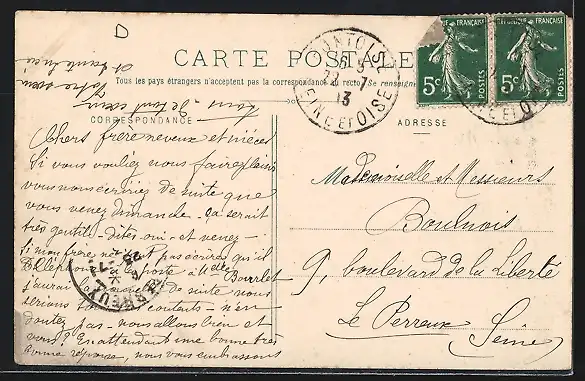 CARTE POSTALE
Tous les pays étrangers n'acceptent pas la correspondance au recto
CORRESPONDANCE
ADRESSE
FRANÇAISE
5c
POSTES
RÉPUBLIQUE FRANÇAISE
5c
POSTES
PONTOISE
13
SEINE ET OISE
Chers frère neveux et nièces
Si vous vouliez nous faire plaisir
vous nous écririez de suite que
vous venez dimanche - ça serait
très gentil - dites oui - et venez -
Si mon frère ne peut pas écrire qu'il
téléphone poste à Melle Bourrlet
j'aurai de suite - nous
serions contents - n'en
doutez pas - nous allons bien et
vous? En attendant une bonne très
bonne réponse, nous vous embrassons
Votre sœur
Mademoiselle et Messieurs
Boulnois
9, boulevard de la Liberté
Le Perreux
Seine